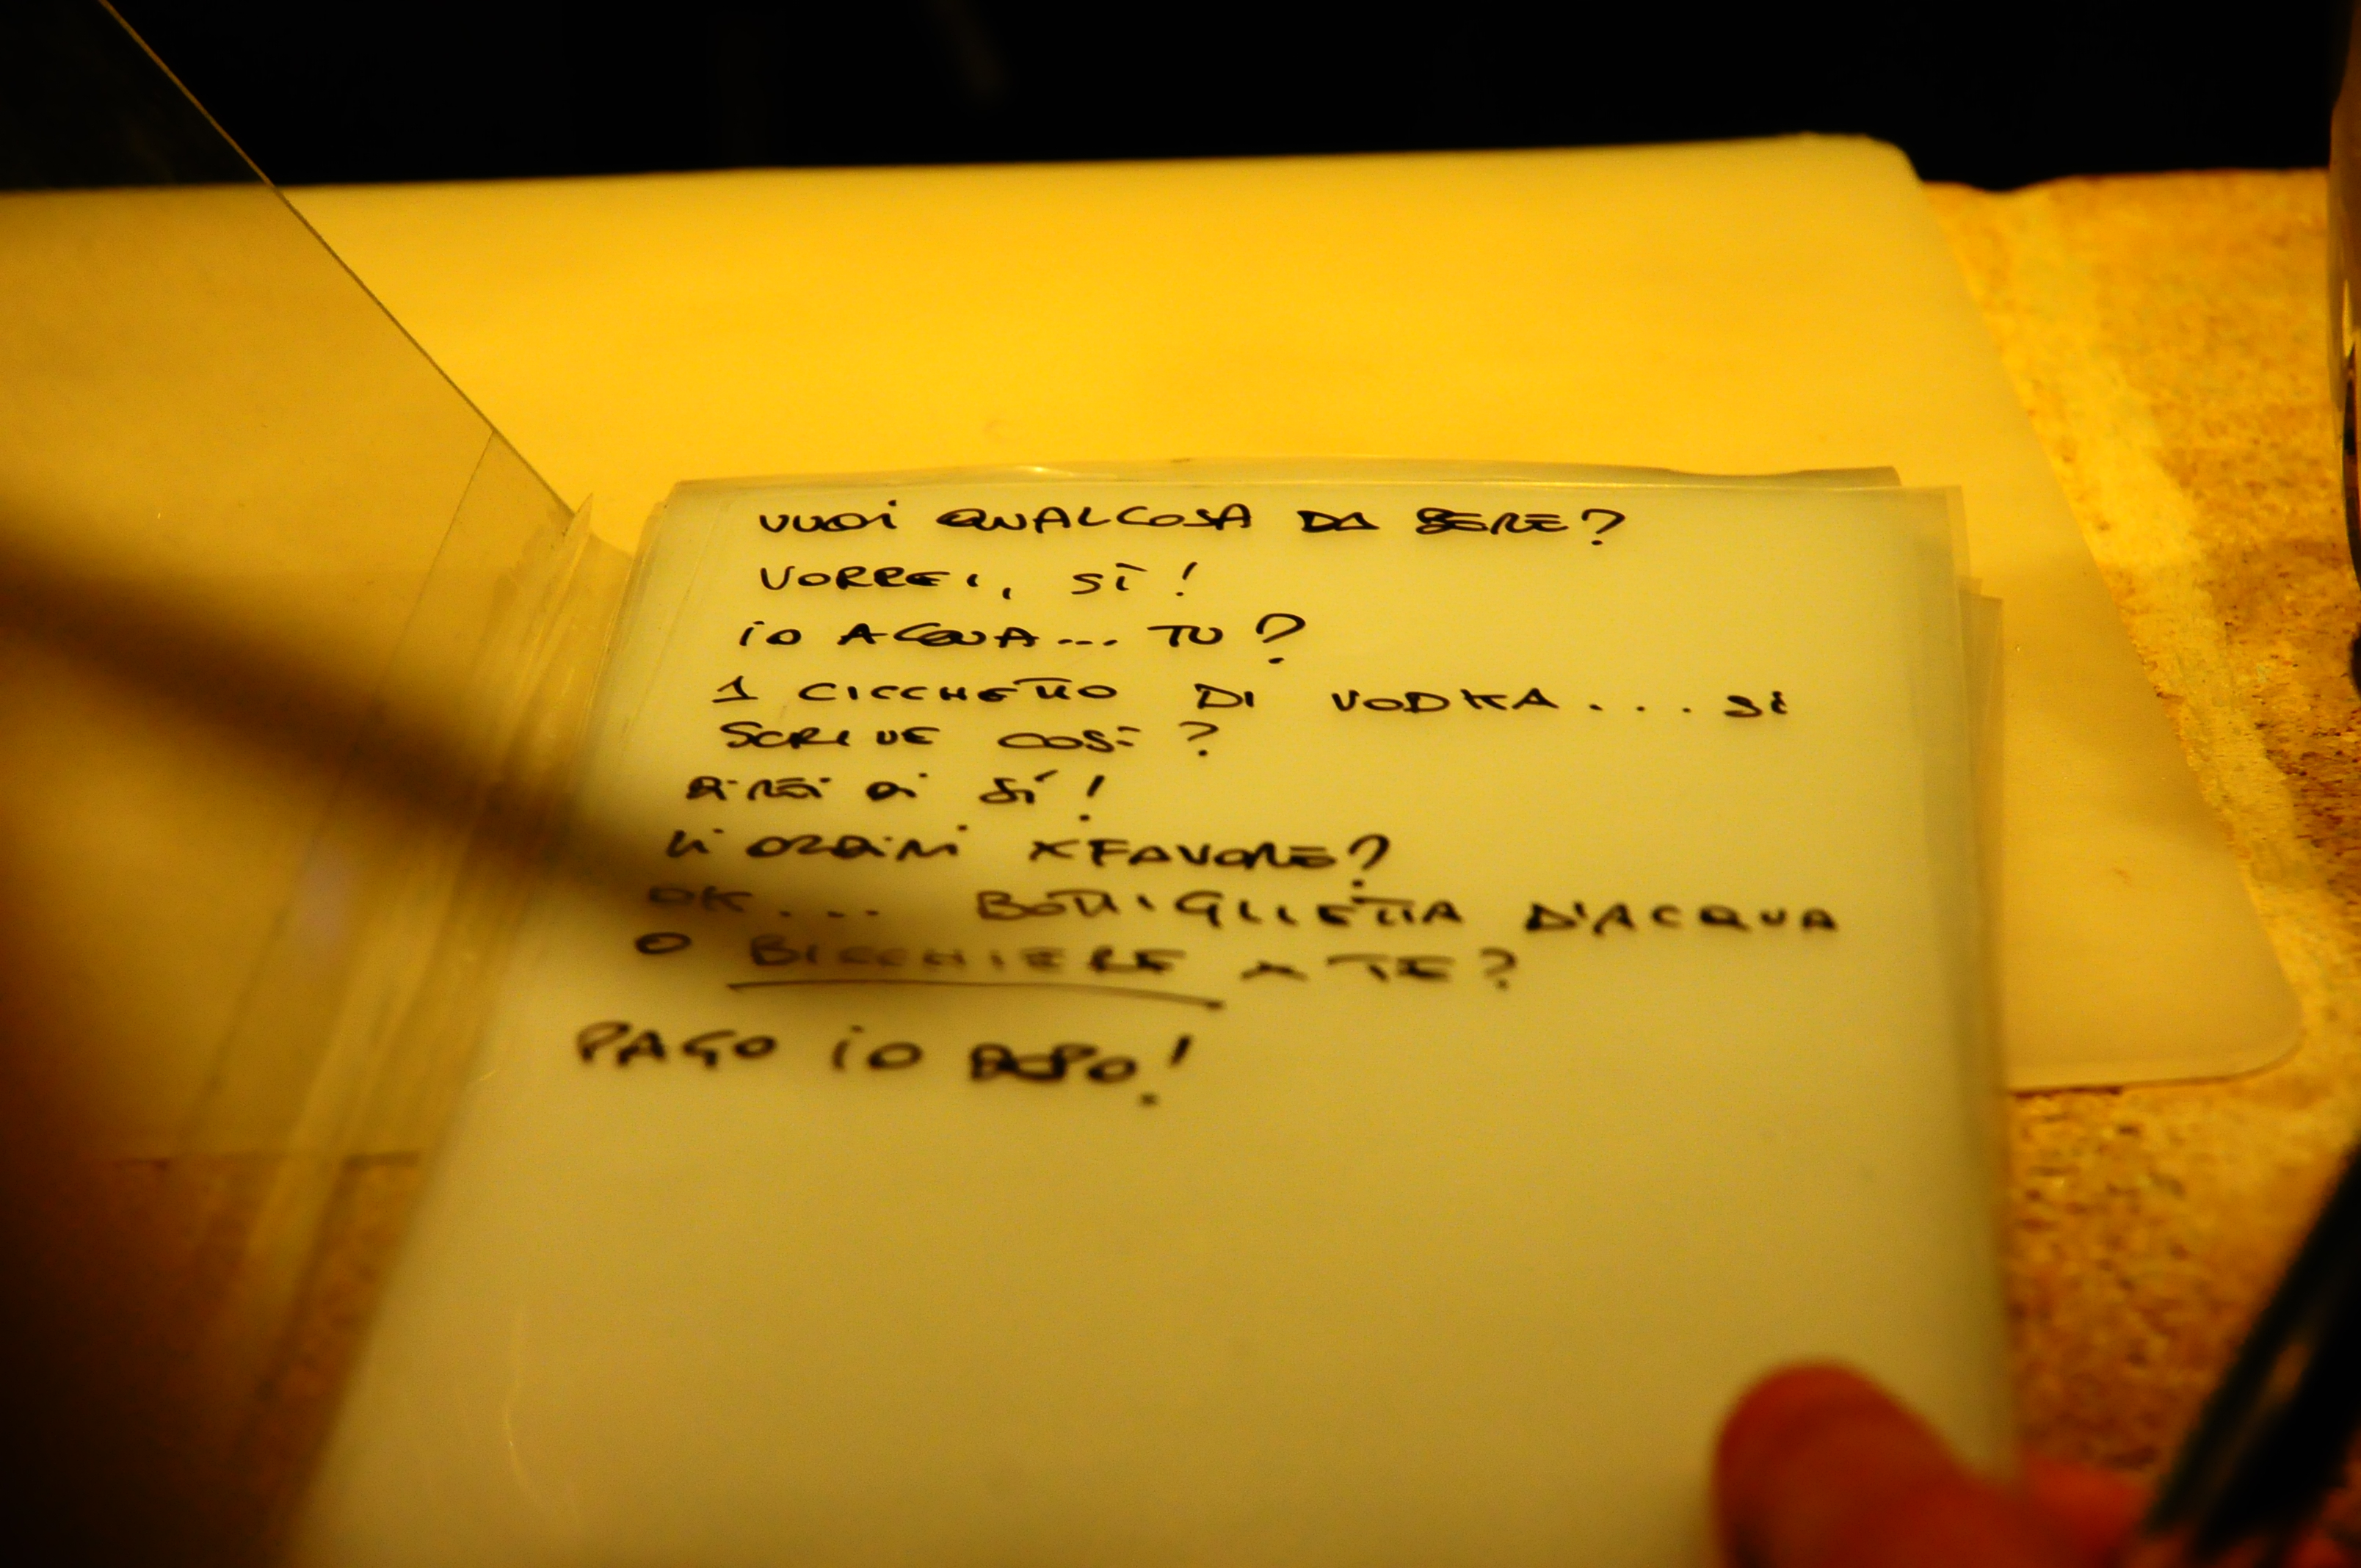 VUOi QUALCOSA DA BERE?
VORREI, SÌ!
iO ACQUA... TU?
1 CICCHETTO DI VODKA... Si
SCRIVE COSÌ?
DiREi Di Sí!
Li ORDiNi X FAVORE?
OK... BOTTIGLIETTA D'ACQUA
O BICCHIERE X TE?
PAGO iO DOPO!